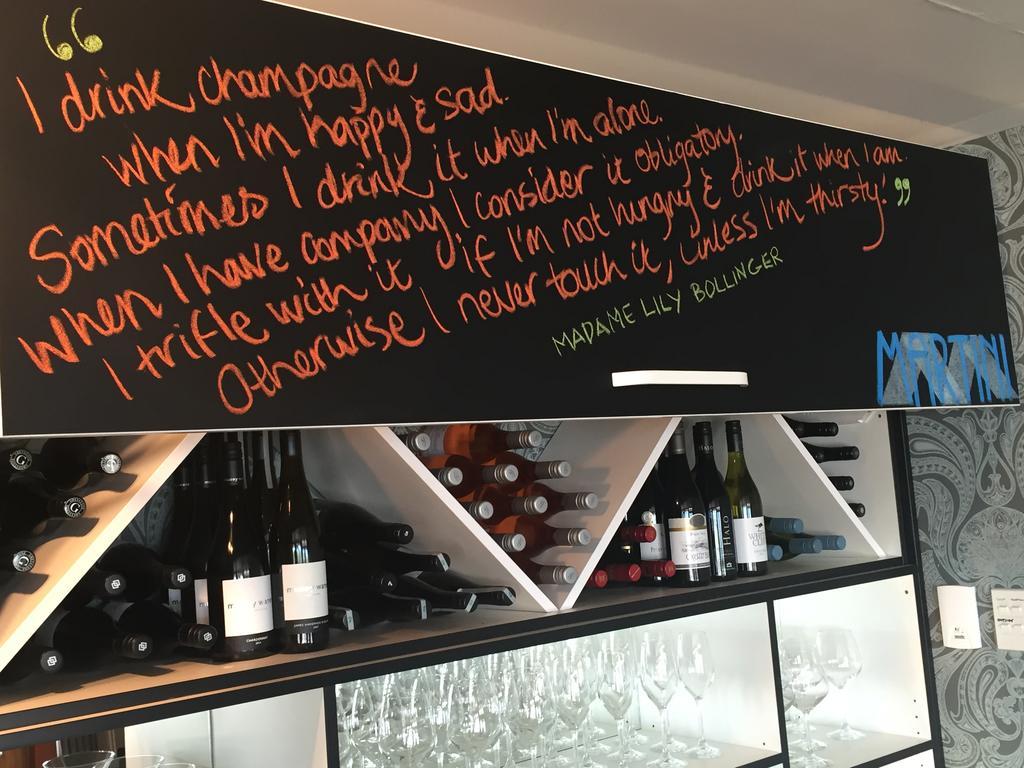 “
I drink champagne
when I'm happy & sad.
Sometimes I drink it when I'm alone.
When I have company, I consider it obligatory.
I trifle with it if I'm not hungry & drink it when I am.
Otherwise I never touch it, unless I'm thirsty! ”
MADAME LILY BOLLINGER
MARTINI
CHARDONNAY